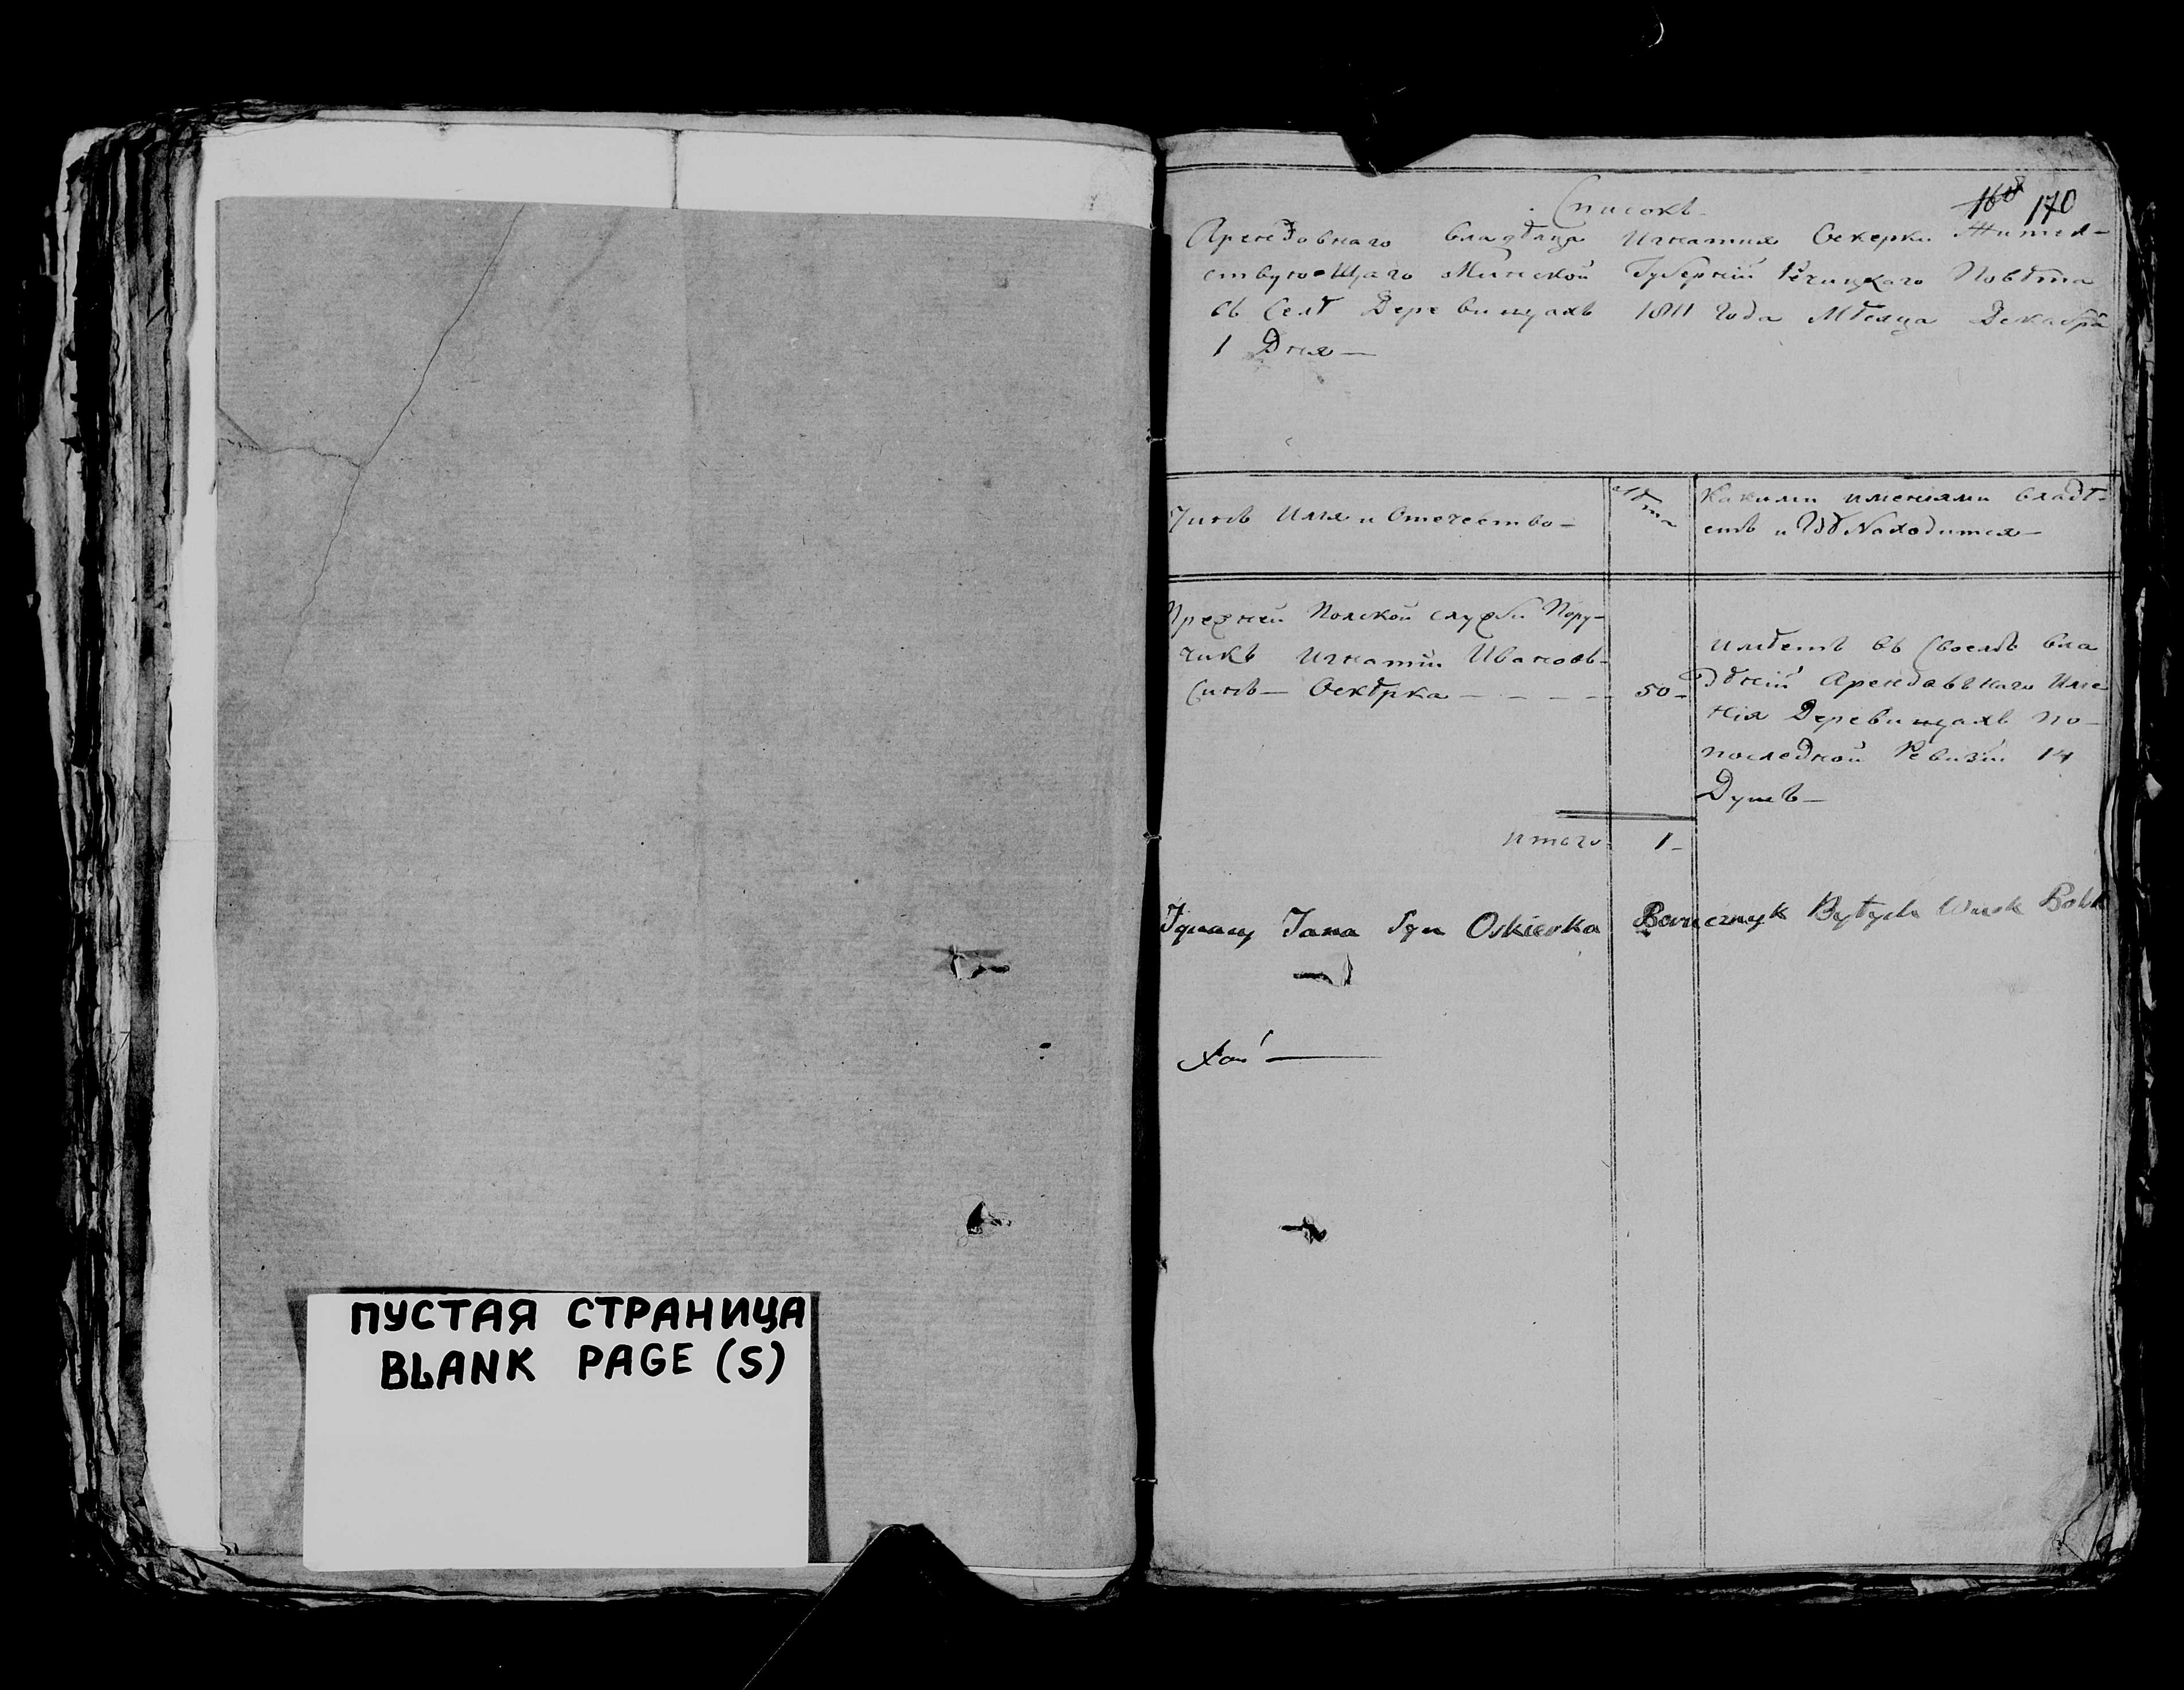 ПУСТАЯ СТРАНИЦА
BLANK PAGE (S)
168 170
Списокъ
Арендовнаго владѣлца Игнатия Оскерки Жител-
ствующаго Минской Губерніи Речицкаго Повѣта
въ Селѣ Деревищахъ 1811 Года Мѣсяца Декабра
1 Дня —
Чинъ Имя и Отечество — Лѣта Какими имениями владѣ-
етъ и Гдѣ Находится —
Прежней Полской служби Пору-
чикъ Игнатій Ивановъ-
Синъ — Оскѣрка — — — — 50 -
имѣетъ въ Своемъ вла
дѣніи Арендавънаго Име
нія Деревищахъ по-
последной Ревизіи 14
Душъ —
итого 1 -
Ignacy Jana Syn Oskierka Porucznyk Byłych Woisk Polsk